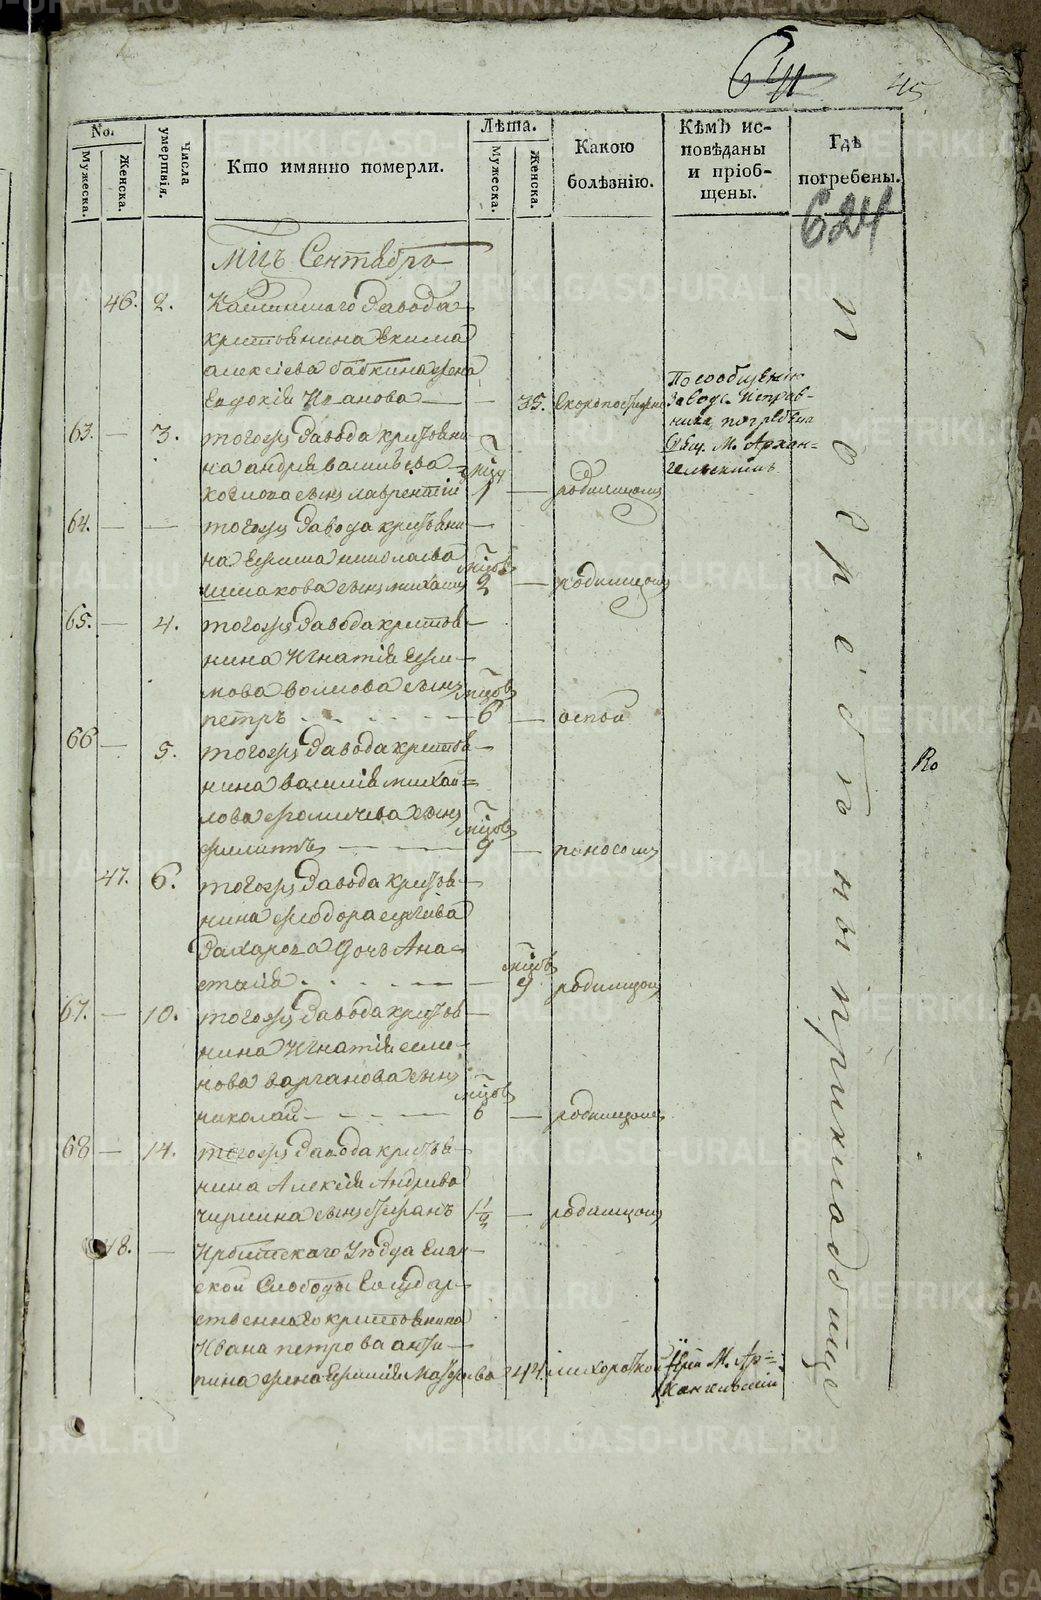 641
45
No.
Мужеска.
Женска.
Числа умертвія.
Кто имянно померли.
Лѣта.
Мужеска.
Женска.
Какою болѣзнію.
Кѣмъ исповѣданы и пріобщены.
Гдѣ погребены.
624
Мцъ Сентябрь
46. 2. Каслинскаго Завода
крестьянина Екима
алексѣева бабкина жена
Евдокія Иванова — — 35. скоропостижно
По сообщенію
Завод. Исправ-
ника погребена
Свящ. М. Архан-
гельскимъ
63. — 3. тогожъ Завода крестьяни
на андрея василѣева мцъ
сынъ лаврентій 1 — родимцомъ
64. — — тогожъ Завода крестьяни
на Ефима николаева мцовъ
шмакова сынъ михаилъ 2 — родимцомъ
65. — 4. тогожъ Завода крестья-
нина Игнатія Ефи-
мова волкова сынъ мцовъ
петръ 6 — оспой
66 — 5. тогожъ Завода крестья-
нина василія михай-
лова фомичева сынъ мцовъ
филиппъ 9 — поносомъ
47. 6. тогожъ Завода крестья-
нина феодора сергіева
Захарова дочь Ана- мцовъ
стасія — 9 родимцомъ
67. — 10. тогожъ Завода крестья-
нина Игнатія семе-
нова варганова сынъ мцовъ
николай 6 — родимцомъ
68 — 14. тогожъ Завода крестья-
нина Алексія Андреева
сынъ Стефанъ 1½ — родимцомъ
48. — Ирбитскаго Уѣзда Елан-
ской Слободы Государ-
ственнаго крестьянина
Ивана петрова анти-
пина жена 44. лихорадкой Іерей М. Ар-
хангельскій
на приходскомъ кладбищѣ